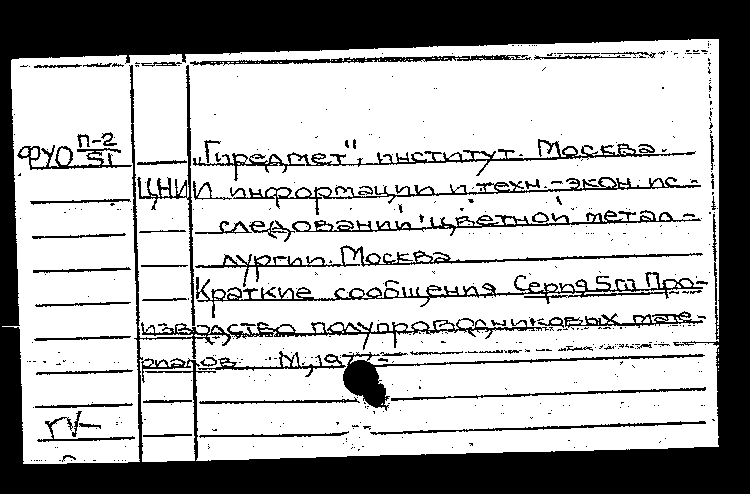 ФУО П-2/51 „Гиредмет", институт. Москва.
ЦНИИ информации и техн.-экон. ис-
следований цветной метал-
лургии. Москва
Краткие сообщения Серия Про-
изводство полупроводниковых мате-
риалов М., 197